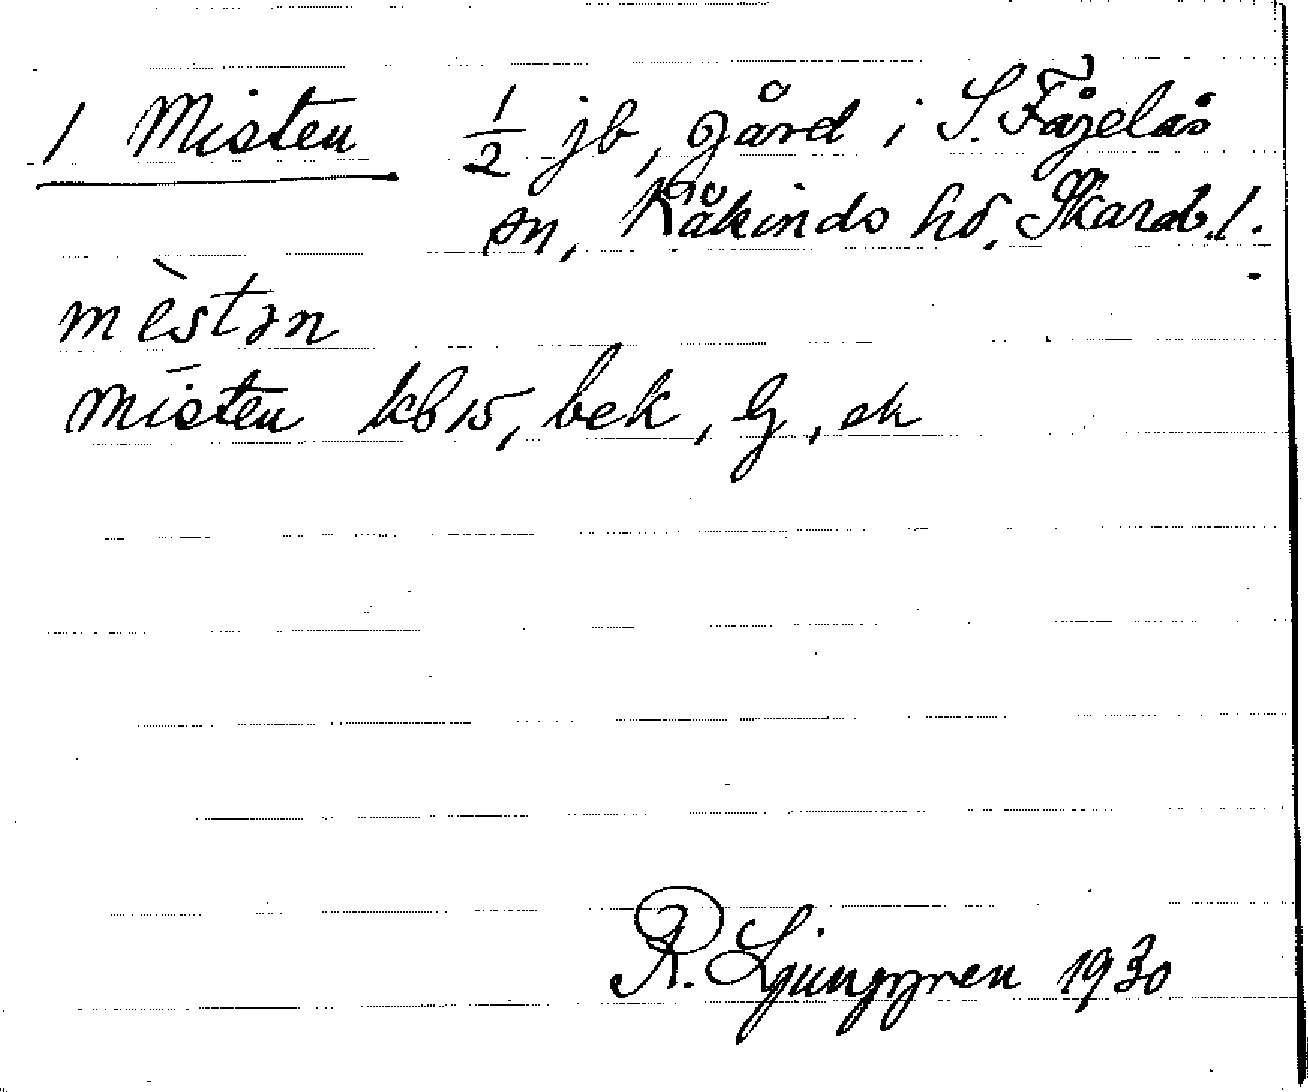 1 Misten ½ jb, gård i S. Fågelås
sn, Kåkinds hd. Skarab. l.
mèstən
misten kb 15, bek, G, ek
R. Ljunggren 1930